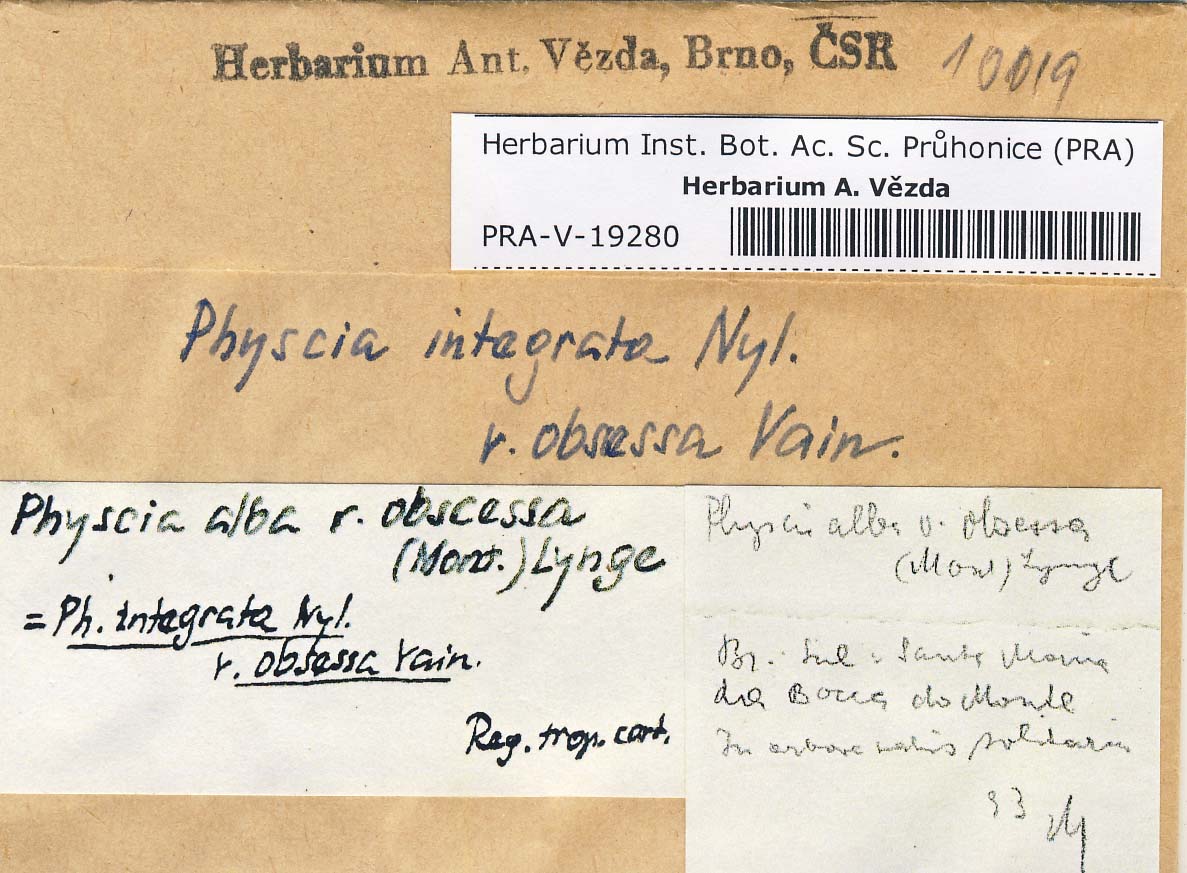 Herbarium Ant. Vězda, Brno, ČSR 10019
Herbarium Inst. Bot. Ac. Sc. Průhonice (PRA)
Herbarium A. Vězda
PRA-V-19280
Physcia integrata Nyl.
v. obsessa Vain.
Physcia alba v. obscessa
(Mont.) Lynge
= Ph. integrata Nyl.
v. obsessa Vain.
Reg. trop. cort.
Physcia alba v. obsessa
(Mont) Lynge
Santa Maria
da Bocca do Monte
In arbore solitaria
93